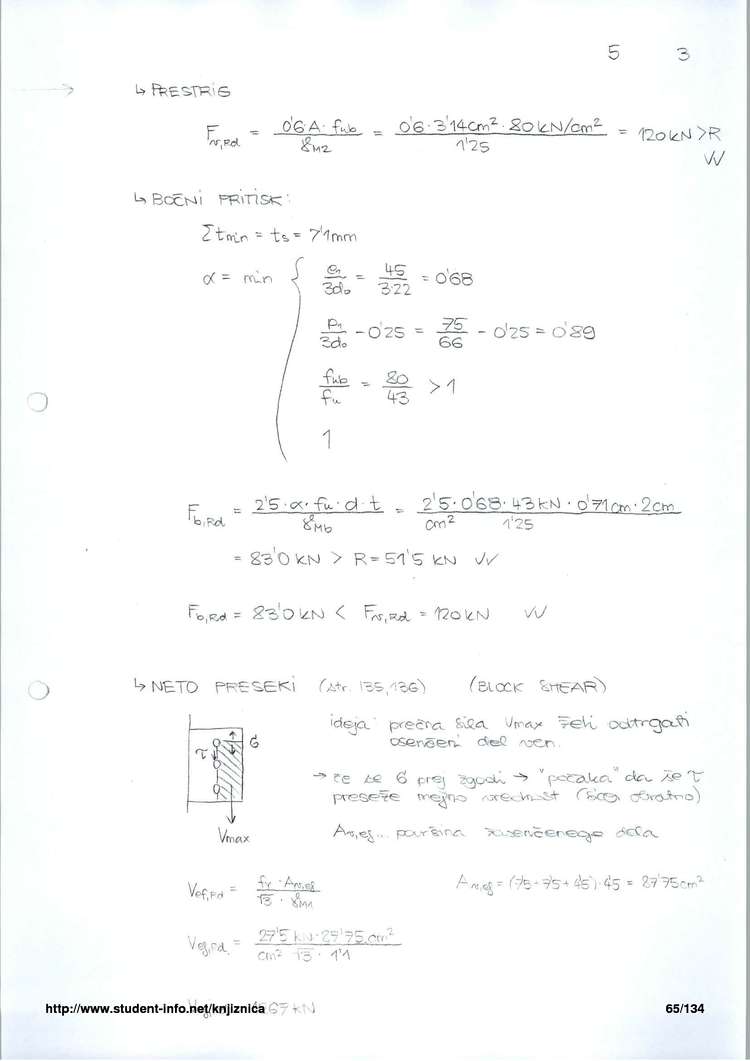 5 3
↳ PRESTRIG
F_v,Rd = 0'6·A·fub / γM2 = 0'6·3'14cm²·80kN/cm² / 1'25 = 120kN > R
√√
↳ BOČNI PRITISK:
Σtmin = ts = 7'1mm
α = min { e1/3d0 = 45/3·22 = 0'68
p1/3d0 - 0'25 = 75/66 - 0'25 = 0'89
fub/fu = 80/43 > 1
1
F_b,Rd = 2'5·α·fu·d·t / γMb = 2'5·0'68·43kN·0'71cm·2cm / cm² 1'25
= 83'0kN > R = 51'5 kN √√
F_b,Rd = 83'0kN < F_v,Rd = 120kN √√
↳ NETO PRESEKI (str. 135,136) (BLOCK SHEAR)
ideja: prečna sila Vmax želi odtrgati
osenčeni del ven.
τ σ
→ če se σ prej zgodi → "počaka" da še τ
preseže mejno vrednost (sicer obratno)
Vmax
Av,ef... površina zasenčenega dela
Vef,Rd = fy·Av,ef / √3·γM1
Av,ef = (75+75+45)·45 = 87'75cm²
Vef,Rd = 27'5 kN· cm² / cm² √3·1'1
kN
http://www.student-info.net/knjiznica
65/134